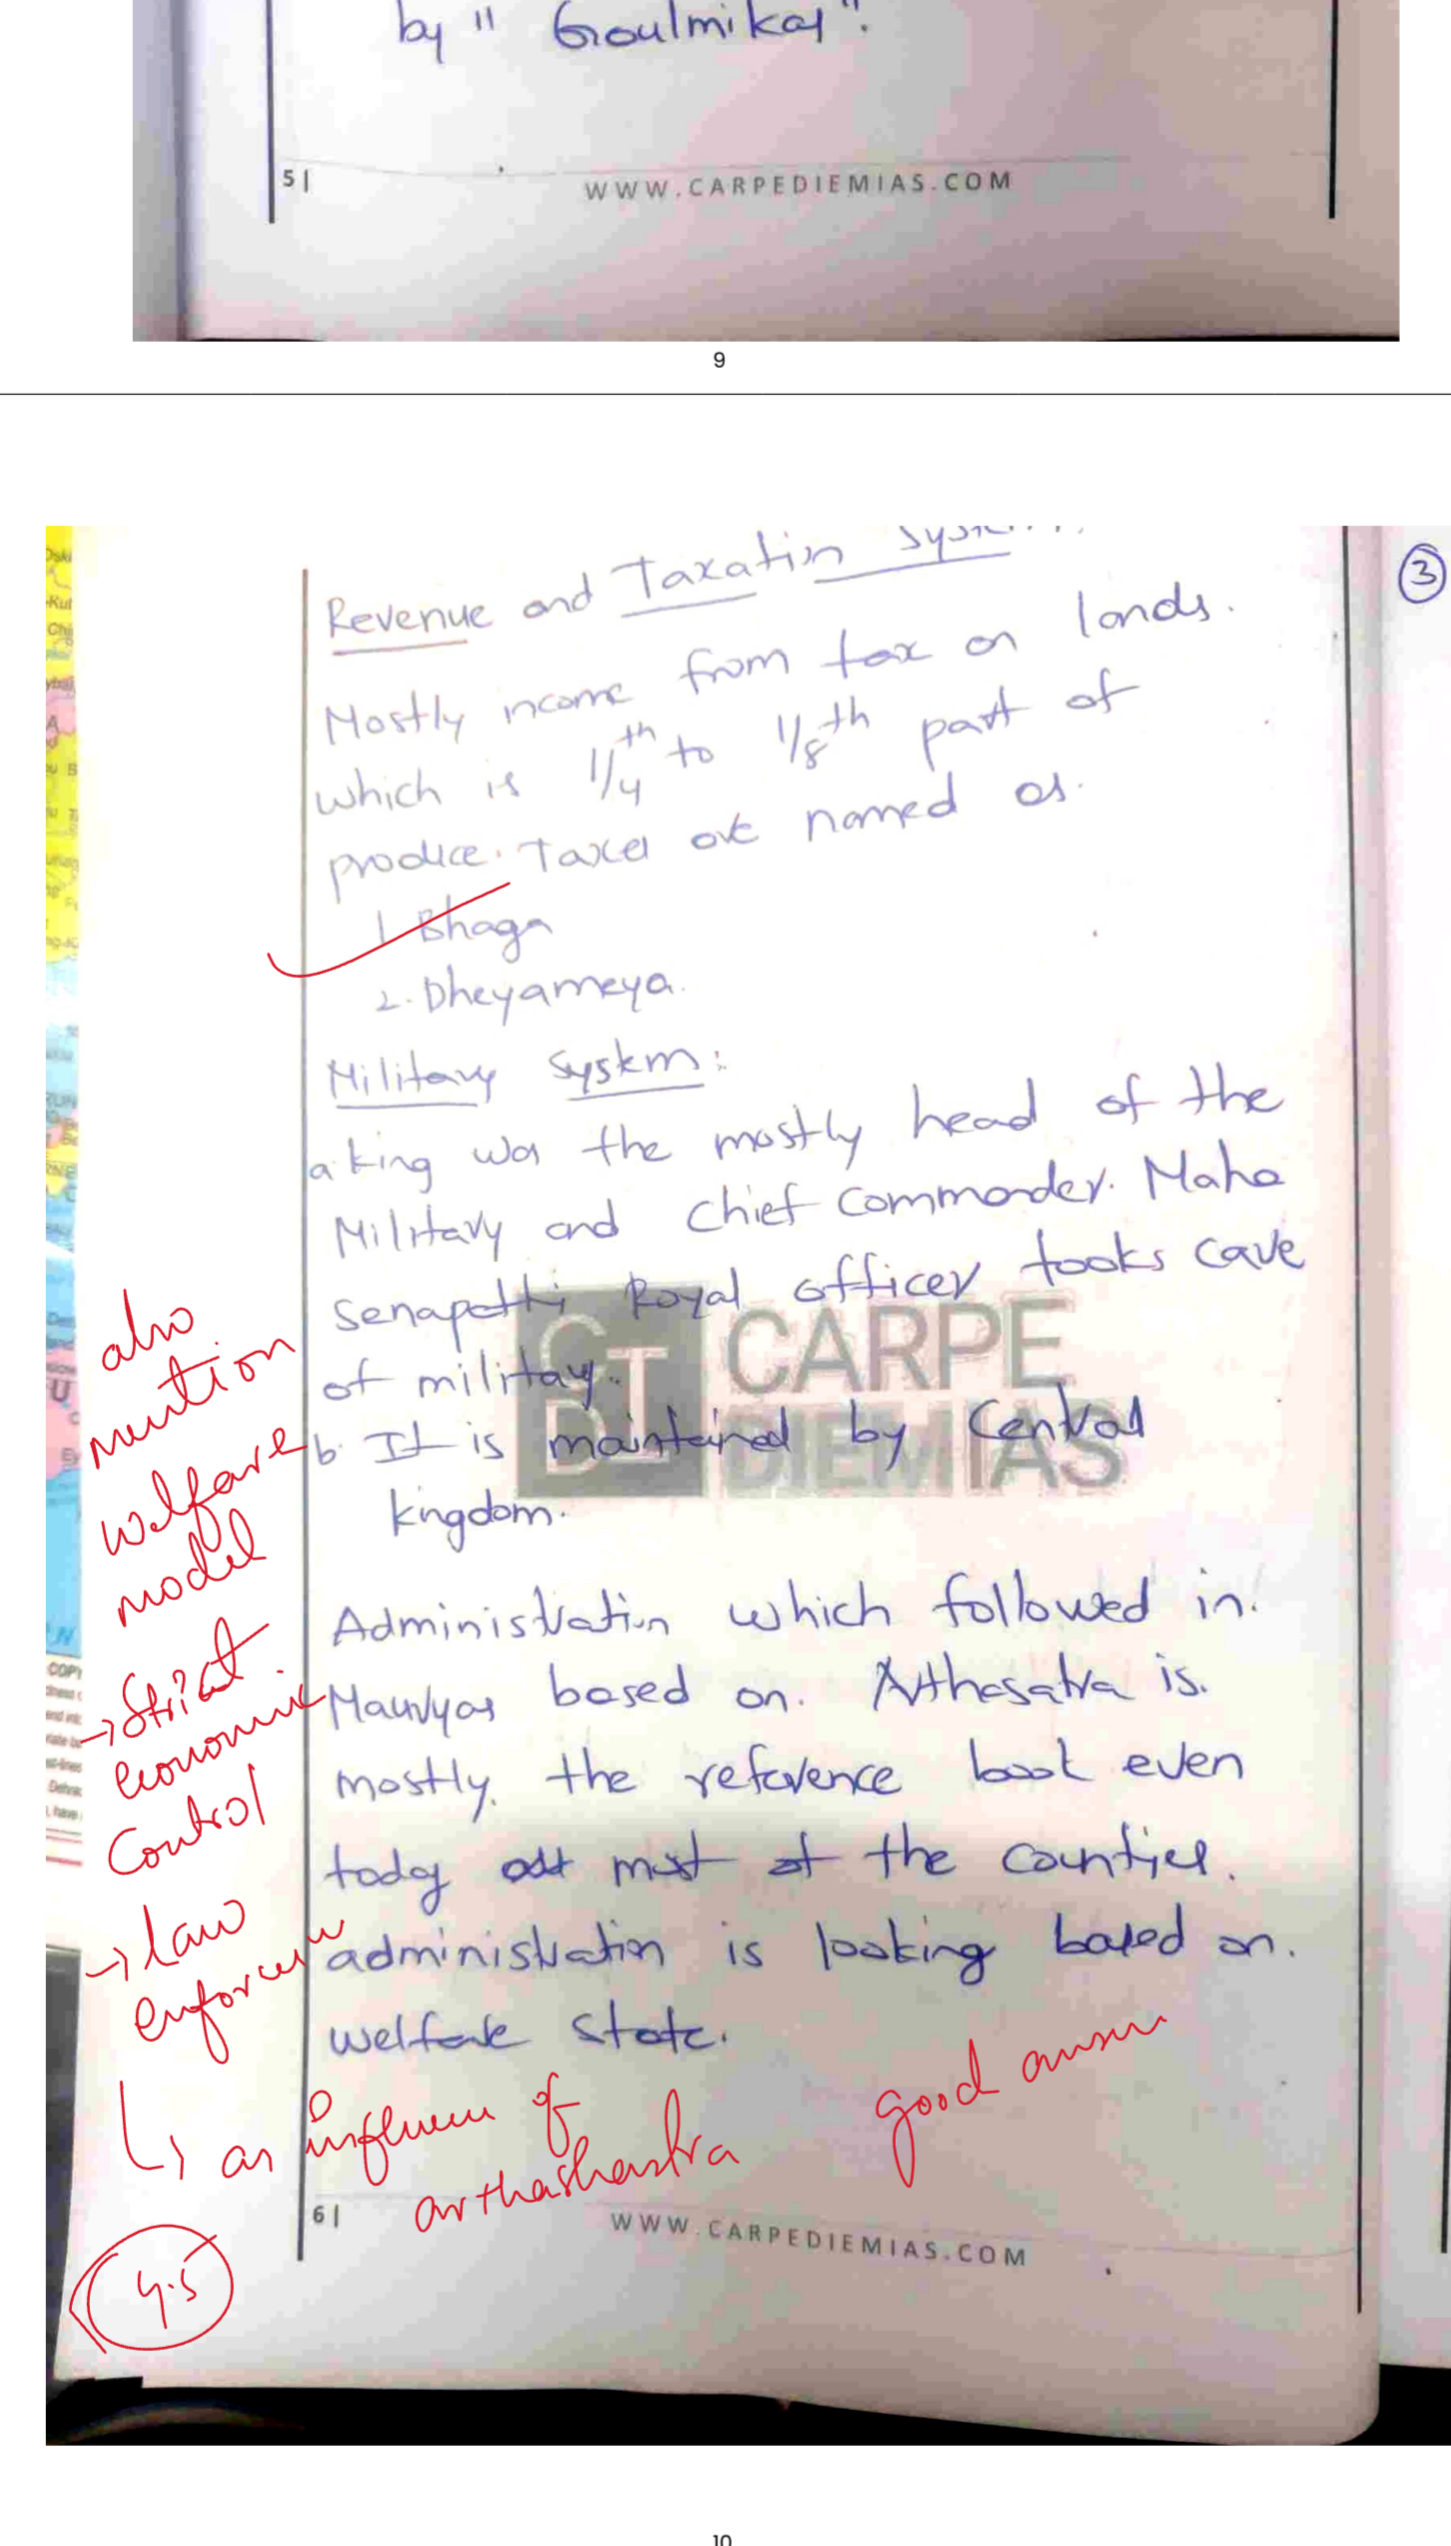 by " Goulmikas".
5 |
WWW.CARPEDIEMIAS.COM
9
Revenue and Taxation
Mostly income from tax on lands.
which is 1/4th to 1/8th part of
produce. Taxes are named as.
1. Bhaga
2. Dheyameya.
Military System:
a. king was the mostly head of the
Military and chief commander. Maha
senapathi Royal officer tooks care
of military.
b. It is maintained by Central
kingdom.
CARPE
DIEM IAS
Administration which followed in.
Mauryas based on. Arthasatra is.
mostly. the reference book even
today most of the countries.
administration is looking based on.
welfare state.
also
mention
welfare
model
→ Strict
economic
Control
→ Law
as influence of
arthashastra
good answer
4.5
6 |
WWW.CARPEDIEMIAS.COM
3
10